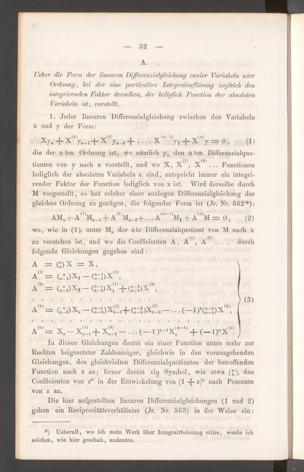 — 32 —
A.
Ueber die Form der linearen Differenzialgleichung zweier Variabeln nter
Ordnung, bei der eine particuläre Integralauflösung zugleich den
integrirenden Factor derselben, der lediglich Function der absoluten
Variabeln ist, vorstellt.
1. Jeder linearen Differenzialgleichung zwischen den Variabeln
x und y der Form:
Xyₙ + X⁽¹⁾yₙ₋₁ + X⁽²⁾yₙ₋₂ + . . . . X⁽ⁿ⁻¹⁾y₁ + X⁽ⁿ⁾y = 0, (1)
die der n ten Ordnung ist, wo nämlich yₙ den n ten Differenzialquo-
tienten von y nach x vorstellt, und wo X, X⁽¹⁾, X⁽²⁾ . . . Functionen
lediglich der absoluten Variabeln x sind, entspricht immer ein integri-
render Factor der Function lediglich von x ist. Wird derselbe durch
M vorgestellt, so hat solcher einer analogen Differenzialgleichung der
gleichen Ordnung zu genügen, die folgender Form ist: (Jr. Nr. 562*):
AMₙ + A⁽¹⁾Mₙ₋₁ + A⁽²⁾Mₙ₋₂ ... A⁽ⁿ⁻¹⁾M₁ + A⁽ⁿ⁾M = 0, (2)
wo, wie in (1), unter Mₙ der nte Differenzialquotient von M nach x
zu verstehen ist, und wo die Coefficienten A, A⁽¹⁾, A⁽²⁾ . . . durch
folgende Gleichungen gegeben sind:
A = X = X,
(3)
In diesen Gleichungen deutet ein einer Function unten mehr zur
Rechten beigesetzter Zahlenzeiger, gleichwie in den vorausgehenden
Gleichungen, den gleichvielten Differenzialquotienten der betreffenden
Function nach x an; ferner deutet ein Symbol, wie etwa den
Coefficienten von zⁿ in der Entwickelung von (1 + z)ᵘ nach Potenzen
von z an.
Die hier aufgestellten linearen Differenzialgleichungen (1 und 2)
gehen ein Reciprocitätsverhältniss (Jr. Nr. 563) in der Weise ein:
*) Ueberall, wo ich mein Werk über Integralrechnung citire, werde ich
solches, wie hier geschah, andeuten.